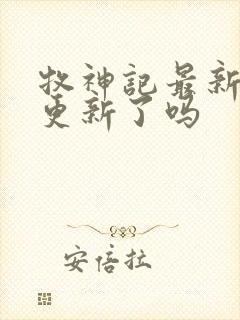 牧神记最新
更新了吗
安倍拉